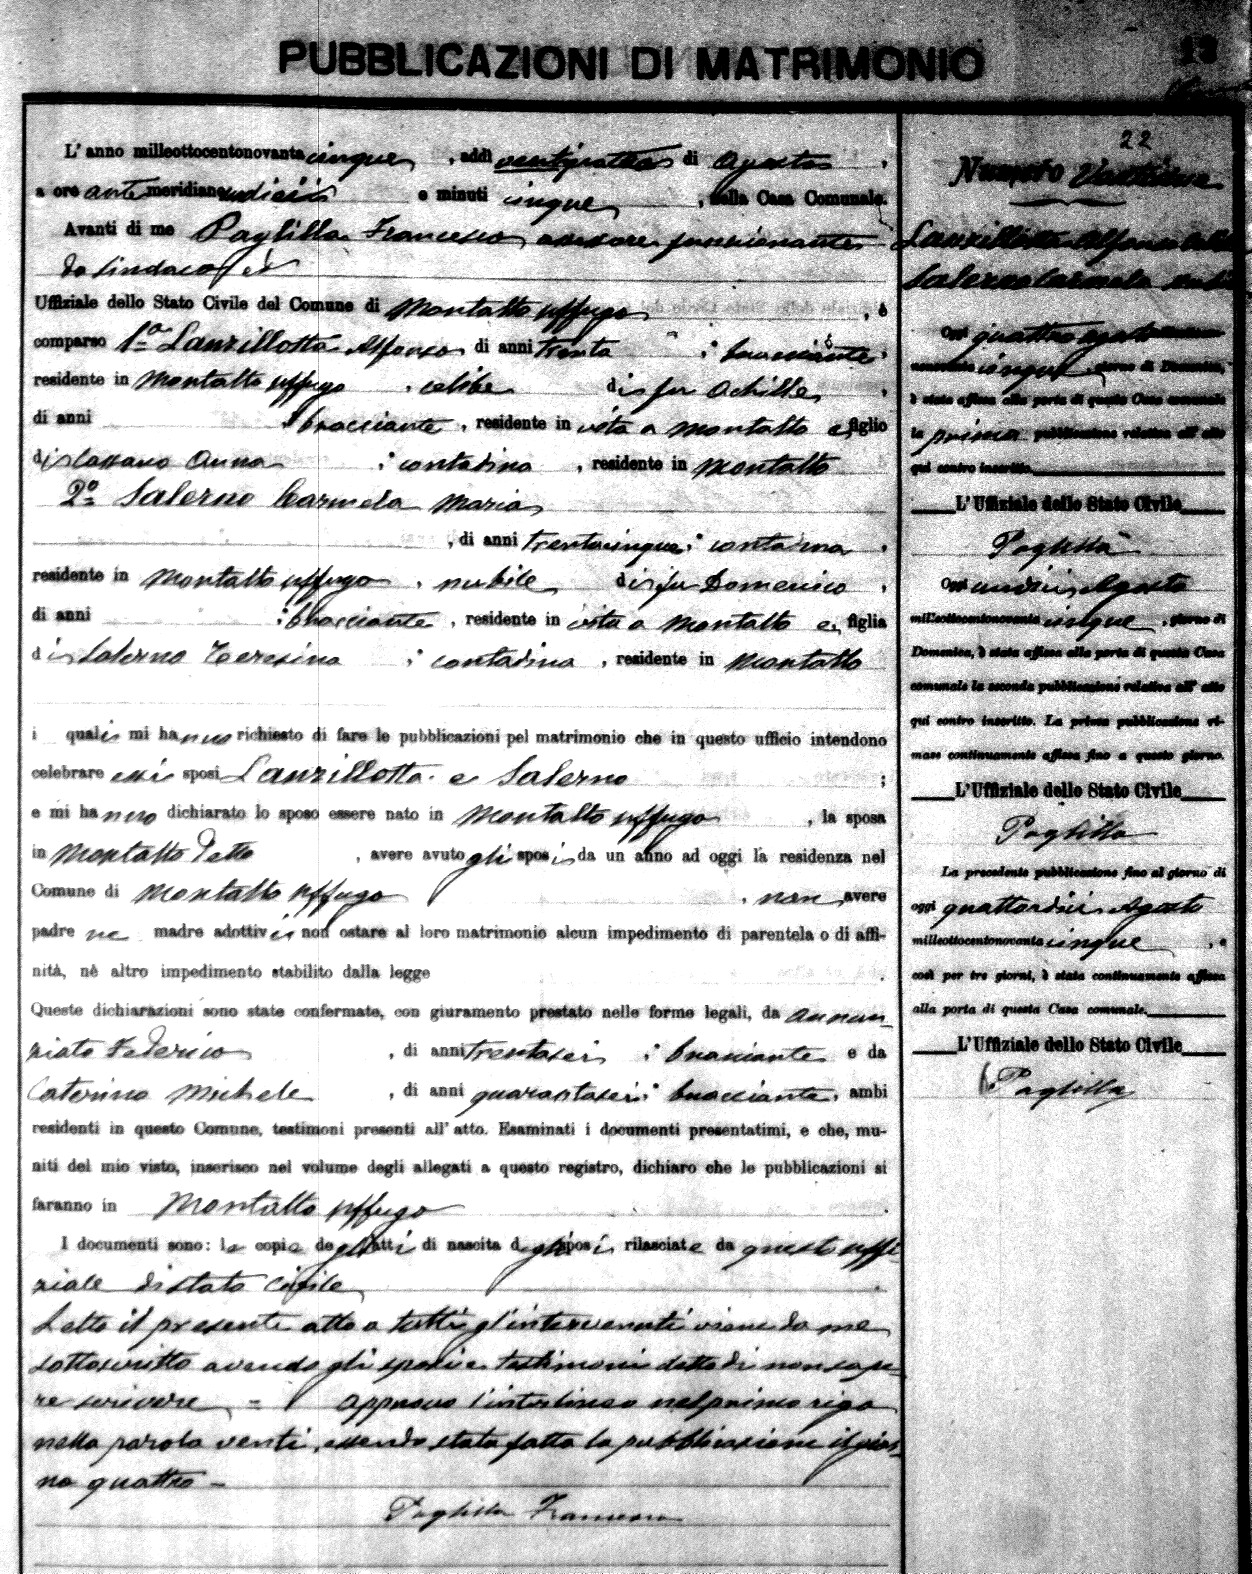 PUBBLICAZIONI DI MATRIMONIO
13
L' anno milleottocentonovanta cinque, addì ventiquattro di Agosto,
a ore ante meridiane undici e minuti cinque, nella Casa Comunale.
Avanti di me Paglilla Francesco assessore funzionante
da sindaco ed
Uffiziale dello Stato Civile del Comune di Montalto Uffugo, è
comparso 1º Lanzillotta Alfonso, di anni trenta, bracciante,
residente in Montalto Uffugo, celibe di fu Achille,
di anni bracciante, residente in vita a Montalto e figlio
di Cassano Anna, contadina, residente in Montalto
2º Salerno Carmela Maria
, di anni trentacinque, contadina,
residente in Montalto Uffugo, nubile di fu Domenico,
di anni bracciante, residente in vita a Montalto e, figlia
di Salerno Teresina, contadina, residente in Montalto
i quali mi hanno richiesto di fare le pubblicazioni pel matrimonio che in questo ufficio intendono
celebrare essi sposi Lanzillotta e Salerno;
e mi hanno dichiarato lo sposo essere nato in Montalto Uffugo, la sposa
in Montalto detto, avere avuto gli sposi da un anno ad oggi la residenza nel
Comune di Montalto Uffugo, non avere
padre ne madre adottivi non ostare al loro matrimonio alcun impedimento di parentela o di affi-
nità, nè altro impedimento stabilito dalla legge.
Queste dichiarazioni sono state confermate, con giuramento prestato nelle forme legali, da Annun-
ziato Federico, di anni trentasei, bracciante e da
Caterino Michele, di anni quarantasei, bracciante, ambi
residenti in questo Comune, testimoni presenti all' atto. Esaminati i documenti presentatimi, e che, mu-
niti del mio visto, inserisco nel volume degli allegati a questo registro, dichiaro che le pubblicazioni si
faranno in Montalto Uffugo.
I documenti sono: le copie degli atti di nascita degli sposi rilasciate da questo uffi-
ziale di stato civile.
Letto il presente atto a tutti gl'intervenuti viene da me
sottoscritto avendo gli sposi e testimoni detto di non sape-
re scrivere = approvo l'interlineo nel primo rigo
nella parola venti, essendo stata fatta la pubblicazione il gior-
no quattro -
Paglilla Francesco
22
Numero
Lanzillotta Alfonso celibe
Salerno Carmela nubile
Oggi quattro agosto milleottocento-
novanta cinque, giorno di Domenica,
è stata affissa alla porta di questa Casa comunale
la prima pubblicazione relativa all' atto
qui contro inscritto.
L'Uffiziale dello Stato Civile
Paglilla
Oggi undici Agosto
milleottocentonovanta cinque, giorno di
Domenica, è stata affissa alla porta di questa Casa
comunale la seconda pubblicazione relativa all' atto
qui contro inscritto. La prima pubblicazione ri-
mase continuamente affissa fino a questo giorno.
L'Uffiziale dello Stato Civile
Paglilla
La precedente pubblicazione fino al giorno di
oggi quattordici Agosto
milleottocentonovanta cinque, e
così per tre giorni, è stata continuamente affissa
alla porta di questa Casa comunale.
L'Uffiziale dello Stato Civile
Paglilla